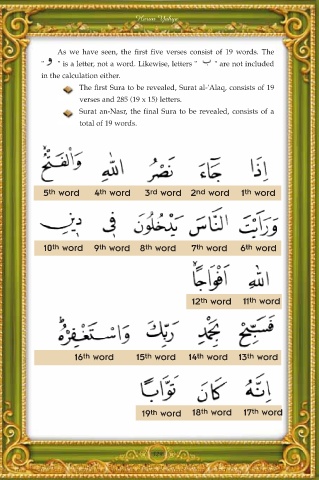 Harun Yahya
As we have seen, the first five verses consist of 19 words. The
"و" is a letter, not a word. Likewise, letters "ب" are not included
in the calculation either.
The first Sura to be revealed, Surat al-'Alaq, consists of 19
verses and 285 (19 x 15) letters.
Surat an-Nasr, the final Sura to be revealed, consists of a
total of 19 words.
اِذَا جَٓاءَ نَصْرُ اللّٰهِ وَالْفَتْحُۙ
1th word 2nd word 3rd word 4th word 5th word
وَرَاَيْتَ النَّاسَ يَدْخُلُونَ فٖي دٖينِ
6th word 7th word 8th word 9th word 10th word
اللّٰهِ اَفْوَاجاًۙ
11th word 12th word
فَسَبِّحْ بِحَمْدِ رَبِّكَ وَاسْتَغْفِرْهُؕ
13th word 14th word 15th word 16th word
اِنَّهُ كَانَ تَوَّاباً
17th word 18th word 19th word